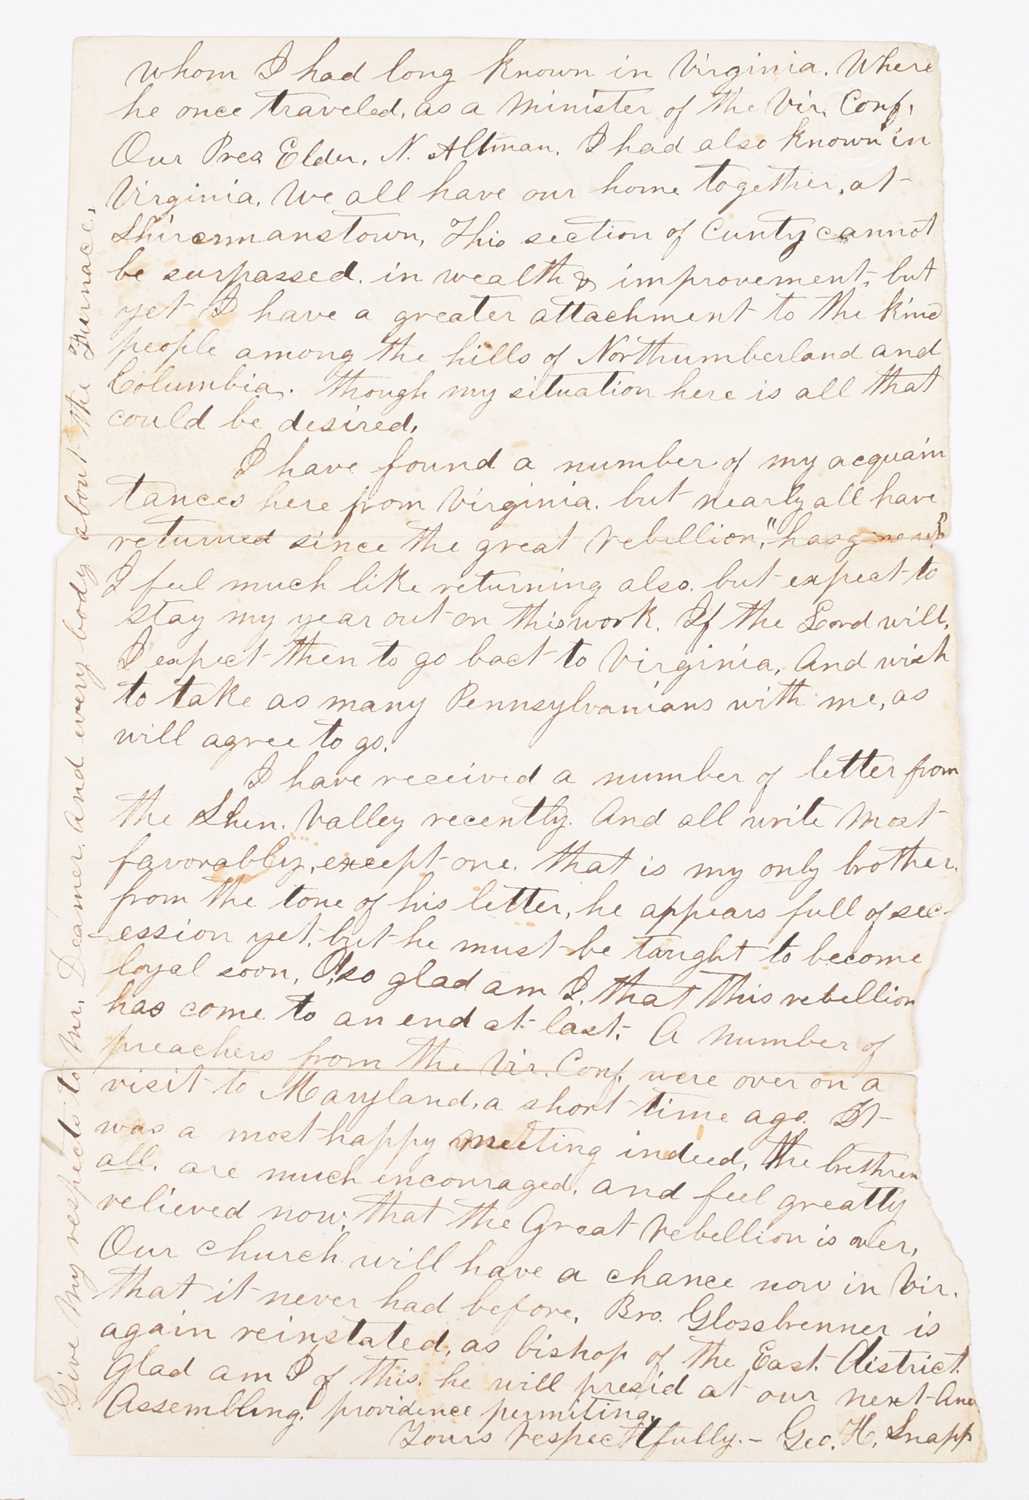 whom I had long known in Virginia. Where
he once traveled, as a Minister of the Vir. Conf.
Our Pres Elder, N. Altman. I had also known in
Virginia. We all have our home together, at
Shiremanstown, This section of Cunty cannot
be surpassed. in wealth & improvement, but
yet I have a greater attachment to the kind
people among the hills of Northumberland and
Columbia. though my situation here is all that
could be desired.
I have found a number of my acquain
tances here from Virginia. but nearly all have
returned since the great rebellion,
I feel much like returning also. but expect to
stay my year out on this work. If the Lord will,
I expect then to go bact to Virginia, And wish
to take as many Pennsylvanians with me, as
will agree to go.
I have received a number of letter from
the Shen. Valley recently. And all write most
favorably, except one. that is my only brother.
from the tone of his letter, he appears full of sec-
ession yet. but he must be taught to become
loyal soon. O, so glad am I, that this rebellion
has come to an end at last. A number of
preachers from the Vir. Conf. were over on a
visit to Maryland, a short time ago. It
was a most happy meeting indeed, the brethren
all. are much encouraged, and feel greatly
relieved now, that the Great rebellion is over,
Our church will have a chance now in Vir.
that it never had before, Bro. Glossbrenner is
again reinstated, as bishop of the East. District.
Glad am I of this. he will presid at our next Ann
Assembling. providence permiting.
Yours respectfully.- Geo. H. Snapp
Give My respects to Mr. Deamer. And every body about the Furnace.